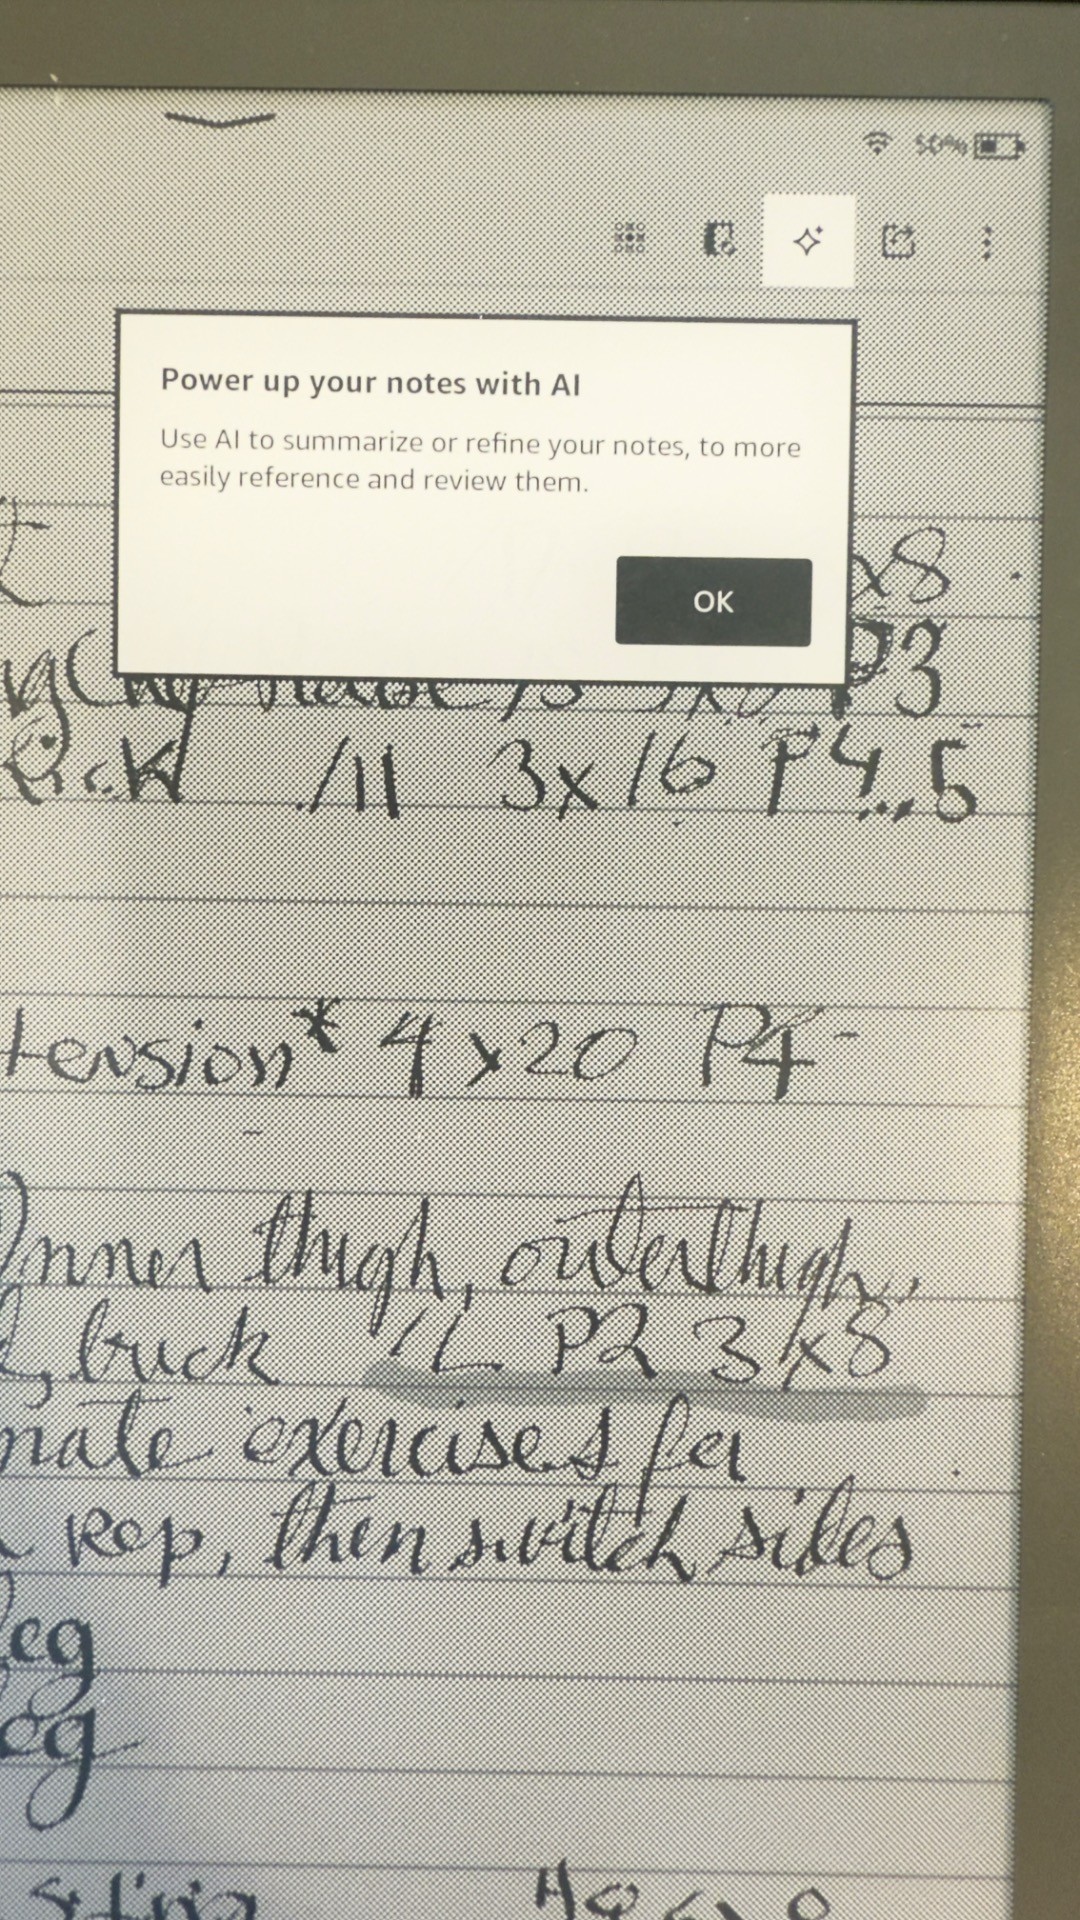 50%
Power up your notes with AI
Use AI to summarize or refine your notes, to more
easily reference and review them.
OK
x8
P3
kick /11 3x16 P4..5
tension* 4x20 P4-
Inner thigh, outer thigh,
buck 1L P2 3x8
nate exercises per
Rep, then switch sides
leg
leg